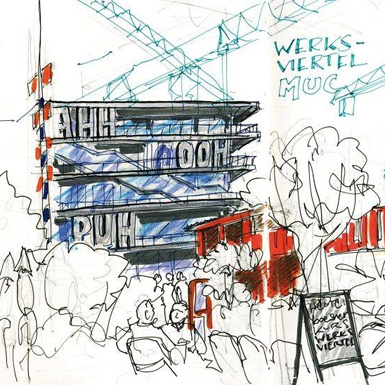 WERKS-
VIERTEL
MUC
AHH
OOH
PUH
HEUTE
ZUR
WERKS
VIERTEL